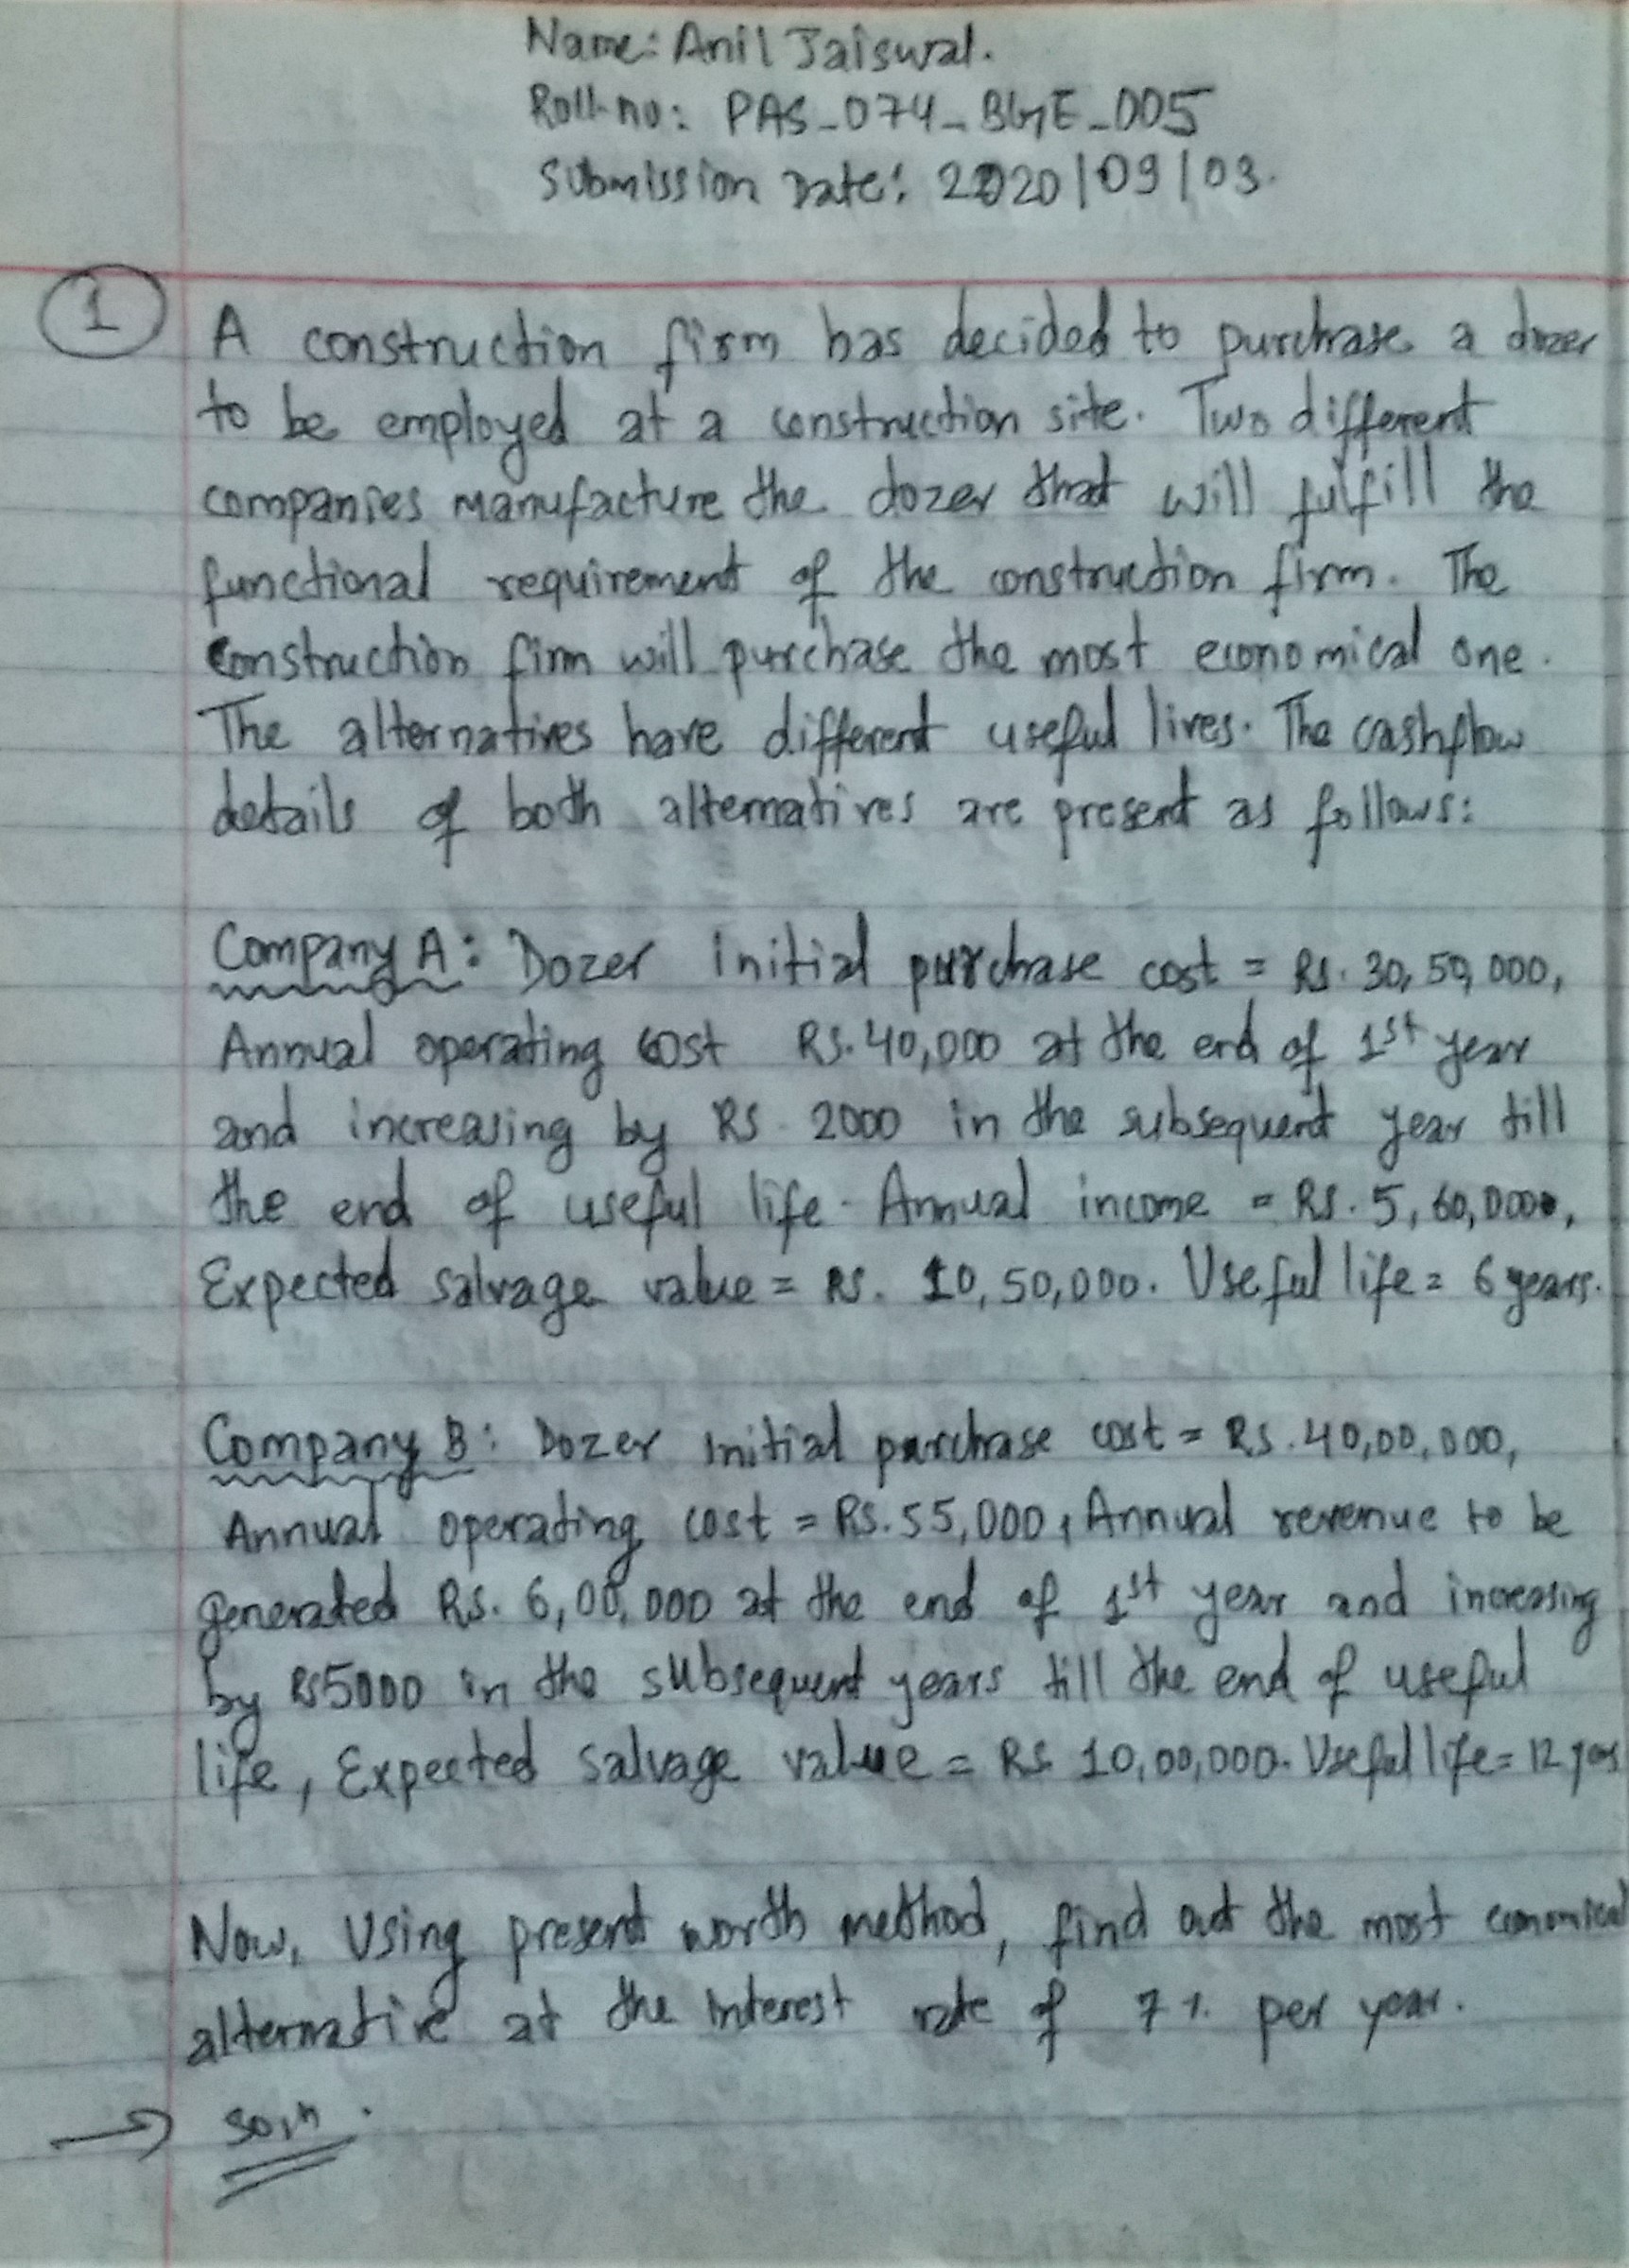 Name: Anil Jaiswal.
Roll-no: PAS_074_BGE_005
Submission Date: 2020/09/03.
1
A construction firm has decided to purchase a dozer
to be employed at a construction site. Two different
companies manufacture the dozer that will fulfill the
functional requirement of the construction firm. The
construction firm will purchase the most economical one.
The alternatives have different useful lives. The cashflow
details of both alternatives are present as follows:
Company A: Dozer initial purchase cost = Rs. 30,50,000,
Annual operating cost Rs. 40,000 at the end of 1st year
and increasing by Rs. 2000 in the subsequent year till
the end of useful life. Annual income = Rs. 5,60,000,
Expected salvage value = Rs. 10,50,000. Useful life = 6 years.
Company B: Dozer initial purchase cost = Rs. 40,00,000,
Annual operating cost = Rs. 55,000, Annual revenue to be
generated Rs. 6,00,000 at the end of 1st year and increasing
by Rs 5000 in the subsequent years till the end of useful
life, Expected salvage value = Rs. 10,00,000. Useful life = 12 years
Now, Using present worth method, find out the most economical
alternative at the interest rate of 7% per year.
→ Soln.